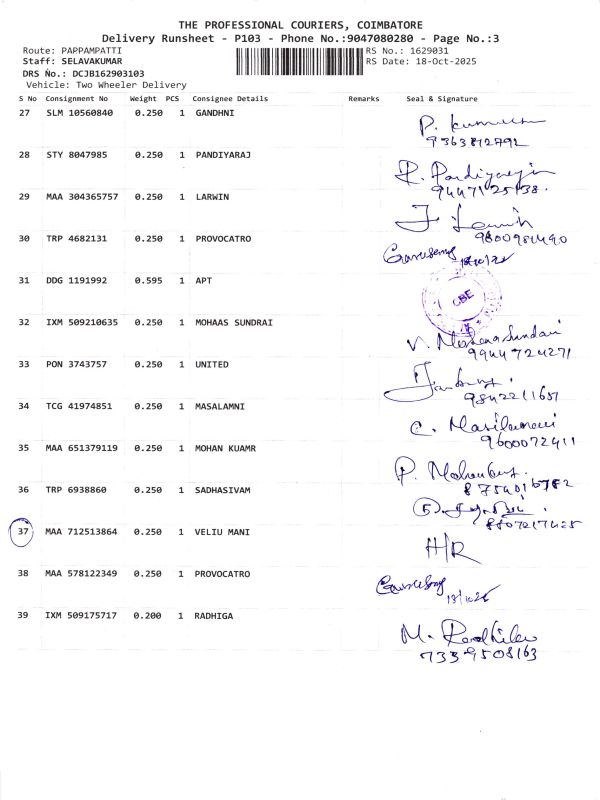 THE PROFESSIONAL COURIERS, COIMBATORE
Delivery Runsheet - P103 - Phone No.:9047080280 - Page No.:3
Route: PAPPAMPATTI
RS No.: 1629031
Staff: SELAVAKUMAR
RS Date: 18-Oct-2025
DRS No.: DCJB162903103
Vehicle: Two Wheeler Delivery
S No Consignment No Weight PCS Consignee Details Remarks Seal & Signature
27 SLM 10560840 0.250 1 GANDHNI
9363812792
28 STY 8047985 0.250 1 PANDIYARAJ
29 MAA 304365757 0.250 1 LARWIN
30 TRP 4682131 0.250 1 PROVOCATRO
31 DDG 1191992 0.595 1 APT
CBE
32 IXM 509210635 0.250 1 MOHAAS SUNDRAI
V. Mohana Sundari
9944724271
33 PON 3743757 0.250 1 UNITED
9842211651
34 TCG 41974851 0.250 1 MASALAMNI
C. Masilamani
9600072411
35 MAA 651379119 0.250 1 MOHAN KUAMR
8754016782
36 TRP 6938860 0.250 1 SADHASIVAM
8807217425
37 MAA 712513864 0.250 1 VELIU MANI
H/R
38 MAA 578122349 0.250 1 PROVOCATRO
39 IXM 509175717 0.200 1 RADHIGA
7339508163